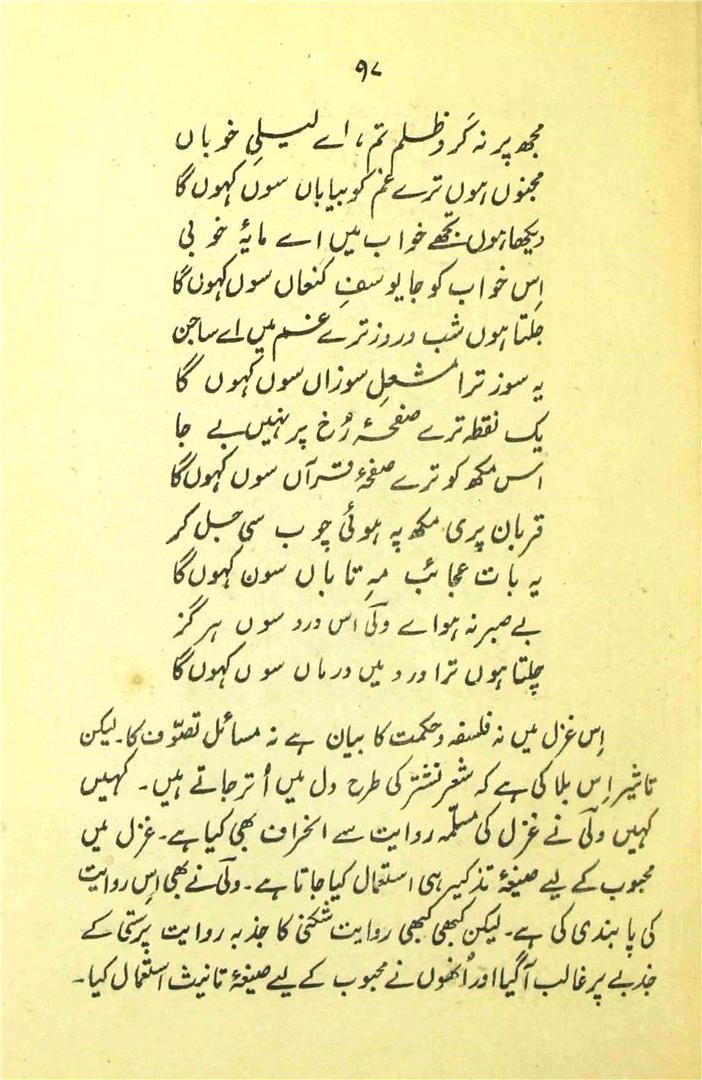 ۹۷
مجھ پر نہ کرو ظلم تم، اے لیلیِ خوباں
مجنوں ہوں ترے غم کو بیاباں سوں کہوں گا
دیکھا ہوں تجھے خواب میں اے مایۂ خوبی
اِس خواب کو جا یوسفِ کنعاں سوں کہوں گا
جلتا ہوں شب و روز ترے غم میں اے ساجن
یہ سوز ترا مشعلِ سوزاں سوں کہوں گا
یک نقطہ ترے صفحۂ رُخ پر نہیں بے جا
اس مکھ کو ترے صفحۂ قرآں سوں کہوں گا
قربان پری مکھ پہ ہوئی چوب سی جل کر
یہ بات عجائب مہِ تاباں سوں کہوں گا
بے صبر نہ ہو اے ولیؔ اس درد سوں ہرگز
چلتا ہوں ترا درد میں درماں سوں کہوں گا
اِس غزل میں نہ فلسفہ و حکمت کا بیان ہے نہ مسائل تصوّف کا۔ لیکن
تاثیر اِس بلا کی ہے کہ شعر نشتر کی طرح دل میں اُتر جاتے ہیں۔ کہیں
کہیں ولیؔ نے غزل کی مسلّمہ روایت سے انحراف بھی کیا ہے۔ غزل میں
محبوب کے لیے صیغۂ تذکیر ہی استعمال کیا جاتا ہے۔ ولیؔ نے بھی اِس روایت
کی پابندی کی ہے۔ لیکن کبھی کبھی روایت شکنی کا جذبہ روایت پرستی کے
جذبے پر غالب آگیا اور اُنھوں نے محبوب کے لیے صیغۂ تانیث استعمال کیا۔